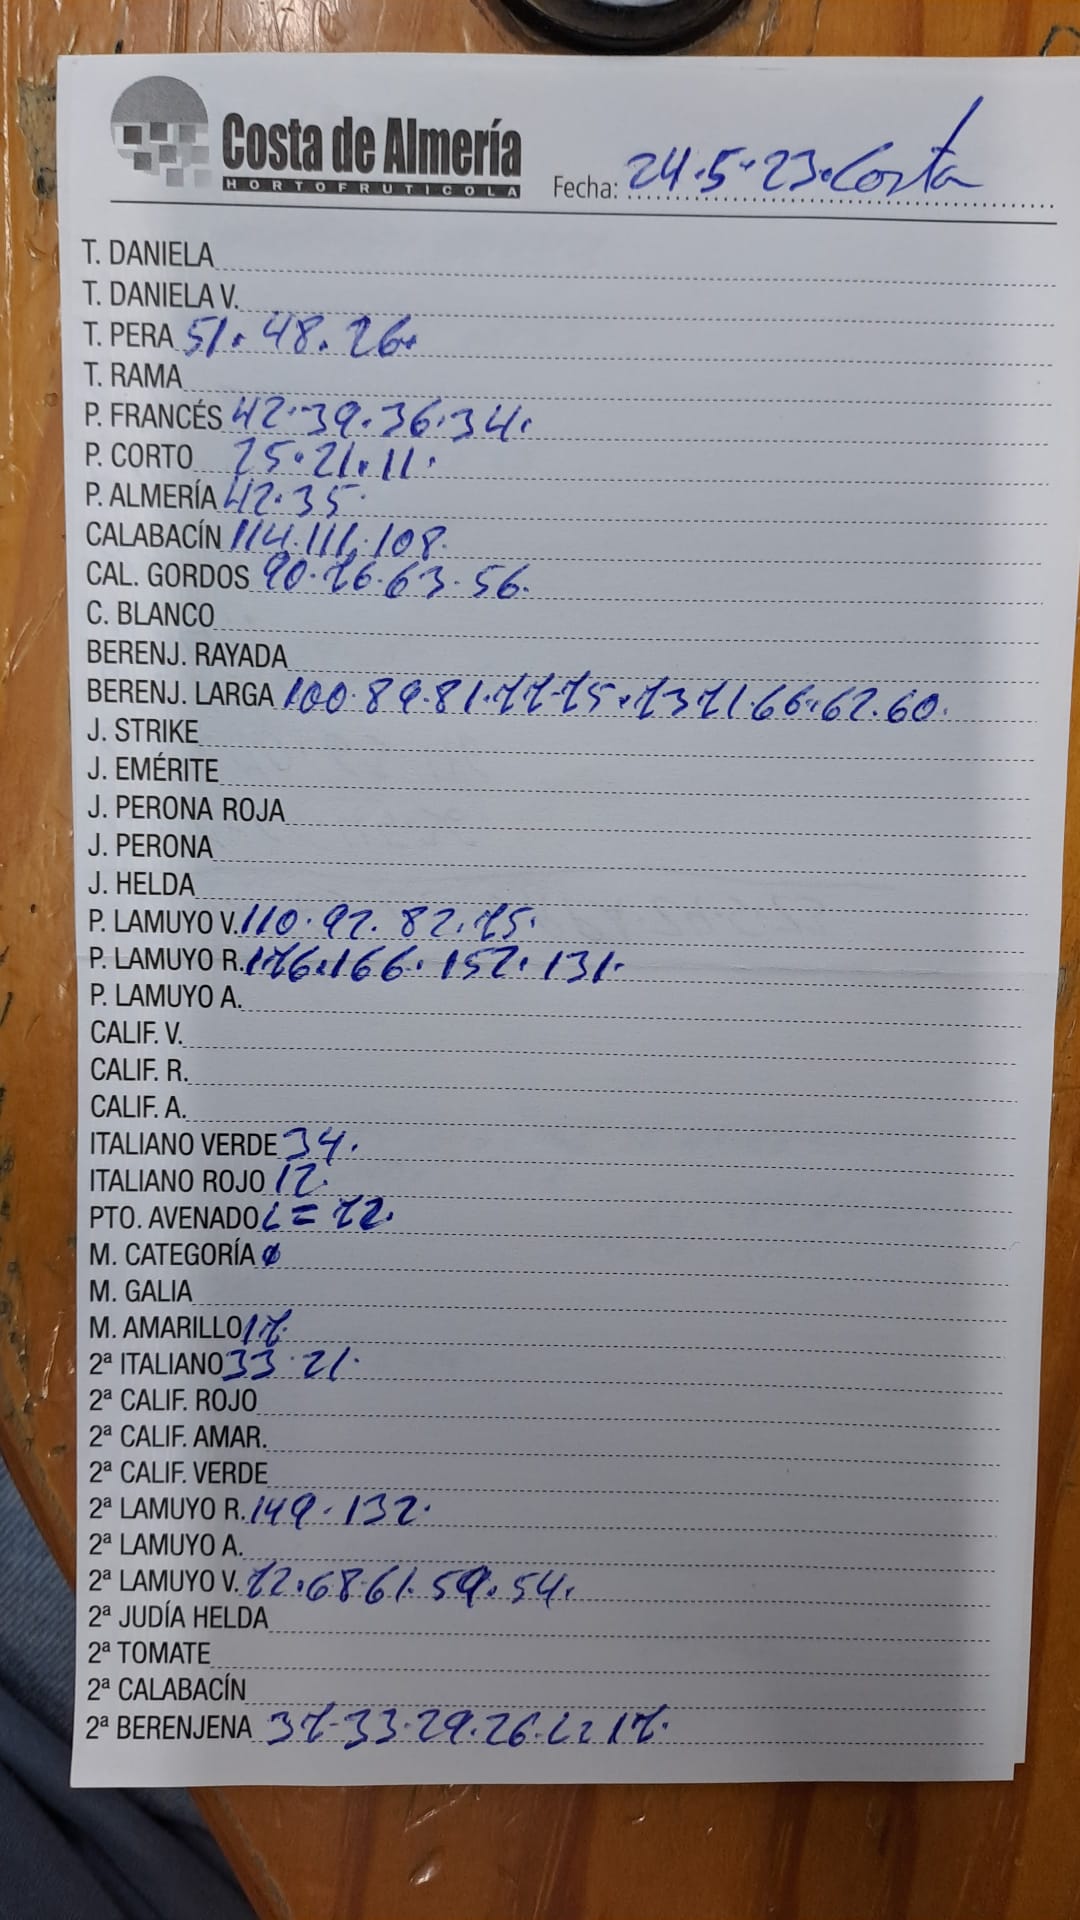 Costa de Almería
HORTOFRUTICOLA
Fecha: 24.5.23. Costa
T. DANIELA
T. DANIELA V.
T. PERA 51. 48. 26.
T. RAMA
P. FRANCÉS 42.39.36.34.
P. CORTO 25.21.11.
P. ALMERÍA 42.35
CALABACÍN 114.111.108.
CAL. GORDOS 90.76.63.56.
C. BLANCO
BERENJ. RAYADA
BERENJ. LARGA 100.89.81.77.75.73 71.66.62.60.
J. STRIKE
J. EMÉRITE
J. PERONA ROJA
J. PERONA
J. HELDA
P. LAMUYO V. 110.92. 82.75.
P. LAMUYO R. 176.166. 152. 131.
P. LAMUYO A.
CALIF. V.
CALIF. R.
CALIF. A.
ITALIANO VERDE 34.
ITALIANO ROJO 12.
PTO. AVENADO L = 72.
M. CATEGORÍA
M. GALIA
M. AMARILLO 17.
2ª ITALIANO 33.21.
2ª CALIF. ROJO
2ª CALIF. AMAR.
2ª CALIF. VERDE
2ª LAMUYO R. 149.132.
2ª LAMUYO A.
2ª LAMUYO V. 72.68 61.59.54.
2ª JUDÍA HELDA
2ª TOMATE
2ª CALABACÍN
2ª BERENJENA 37.33.29.26.22 17.